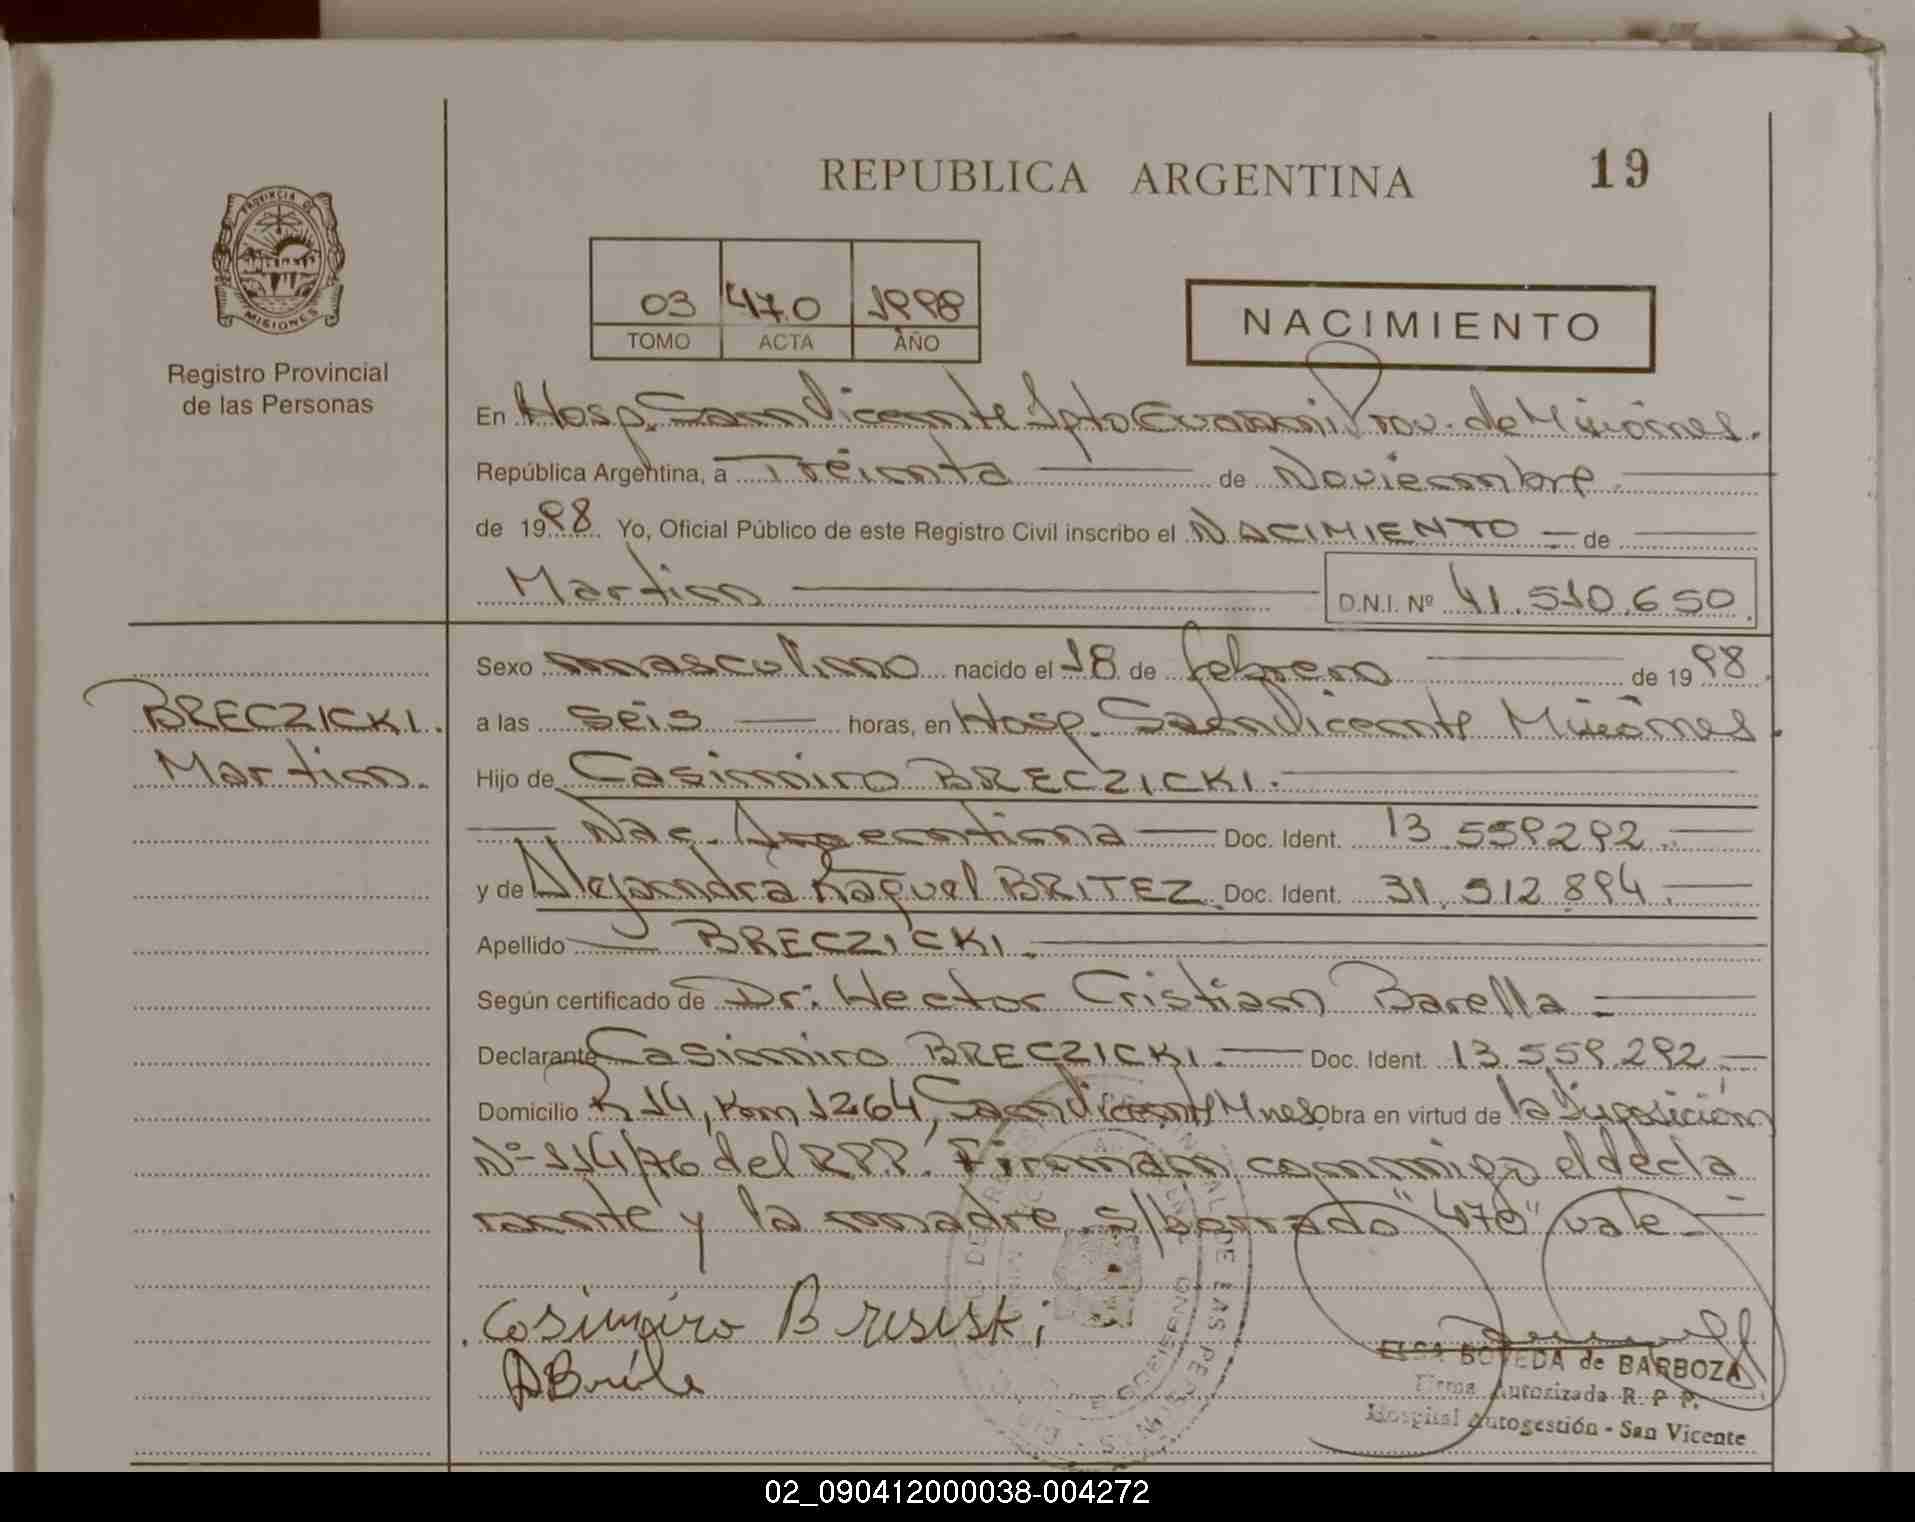 REPUBLICA ARGENTINA
19
PROVINCIA DE
MISIONES
Registro Provincial
de las Personas
03 470 1998
TOMO ACTA AÑO
NACIMIENTO
En Hosp. San Vicente Dpto Guarani Prov. de Misiones.
República Argentina, a Treinta de Noviembre
de 1998 Yo, Oficial Público de este Registro Civil inscribo el NACIMIENTO de
Martin D.N.I. Nº 41.510.650
Sexo masculino nacido el 18 de febrero de 1998
BRECZICKI.
Martin.
a las seis horas, en Hosp. San Vicente Misiones
Hijo de Casimiro BRECZICKI.
Nac. Argentina Doc. Ident. 13.559.292
y de Alejandra Raquel BRITEZ. Doc. Ident. 31.912.894
Apellido BRECZICKI.
Según certificado de Dr: Hector Cristian Barella
Declarante Casimiro BRECZICKI. Doc. Ident. 13.559.292
Domicilio R 14, Km 1264, San Vicente Mnes Obra en virtud de la Disposición
Nº 114/76 del R.P.P. Firman conmigo el decla
rante y la madre. s/borrado "470" vale
Casimiro Bresiski
ABrite
ELSA BOVEDA de BARBOZA
Firma Autorizada R. P. P.
Hospital Autogestión - San Vicente
02_090412000038-004272